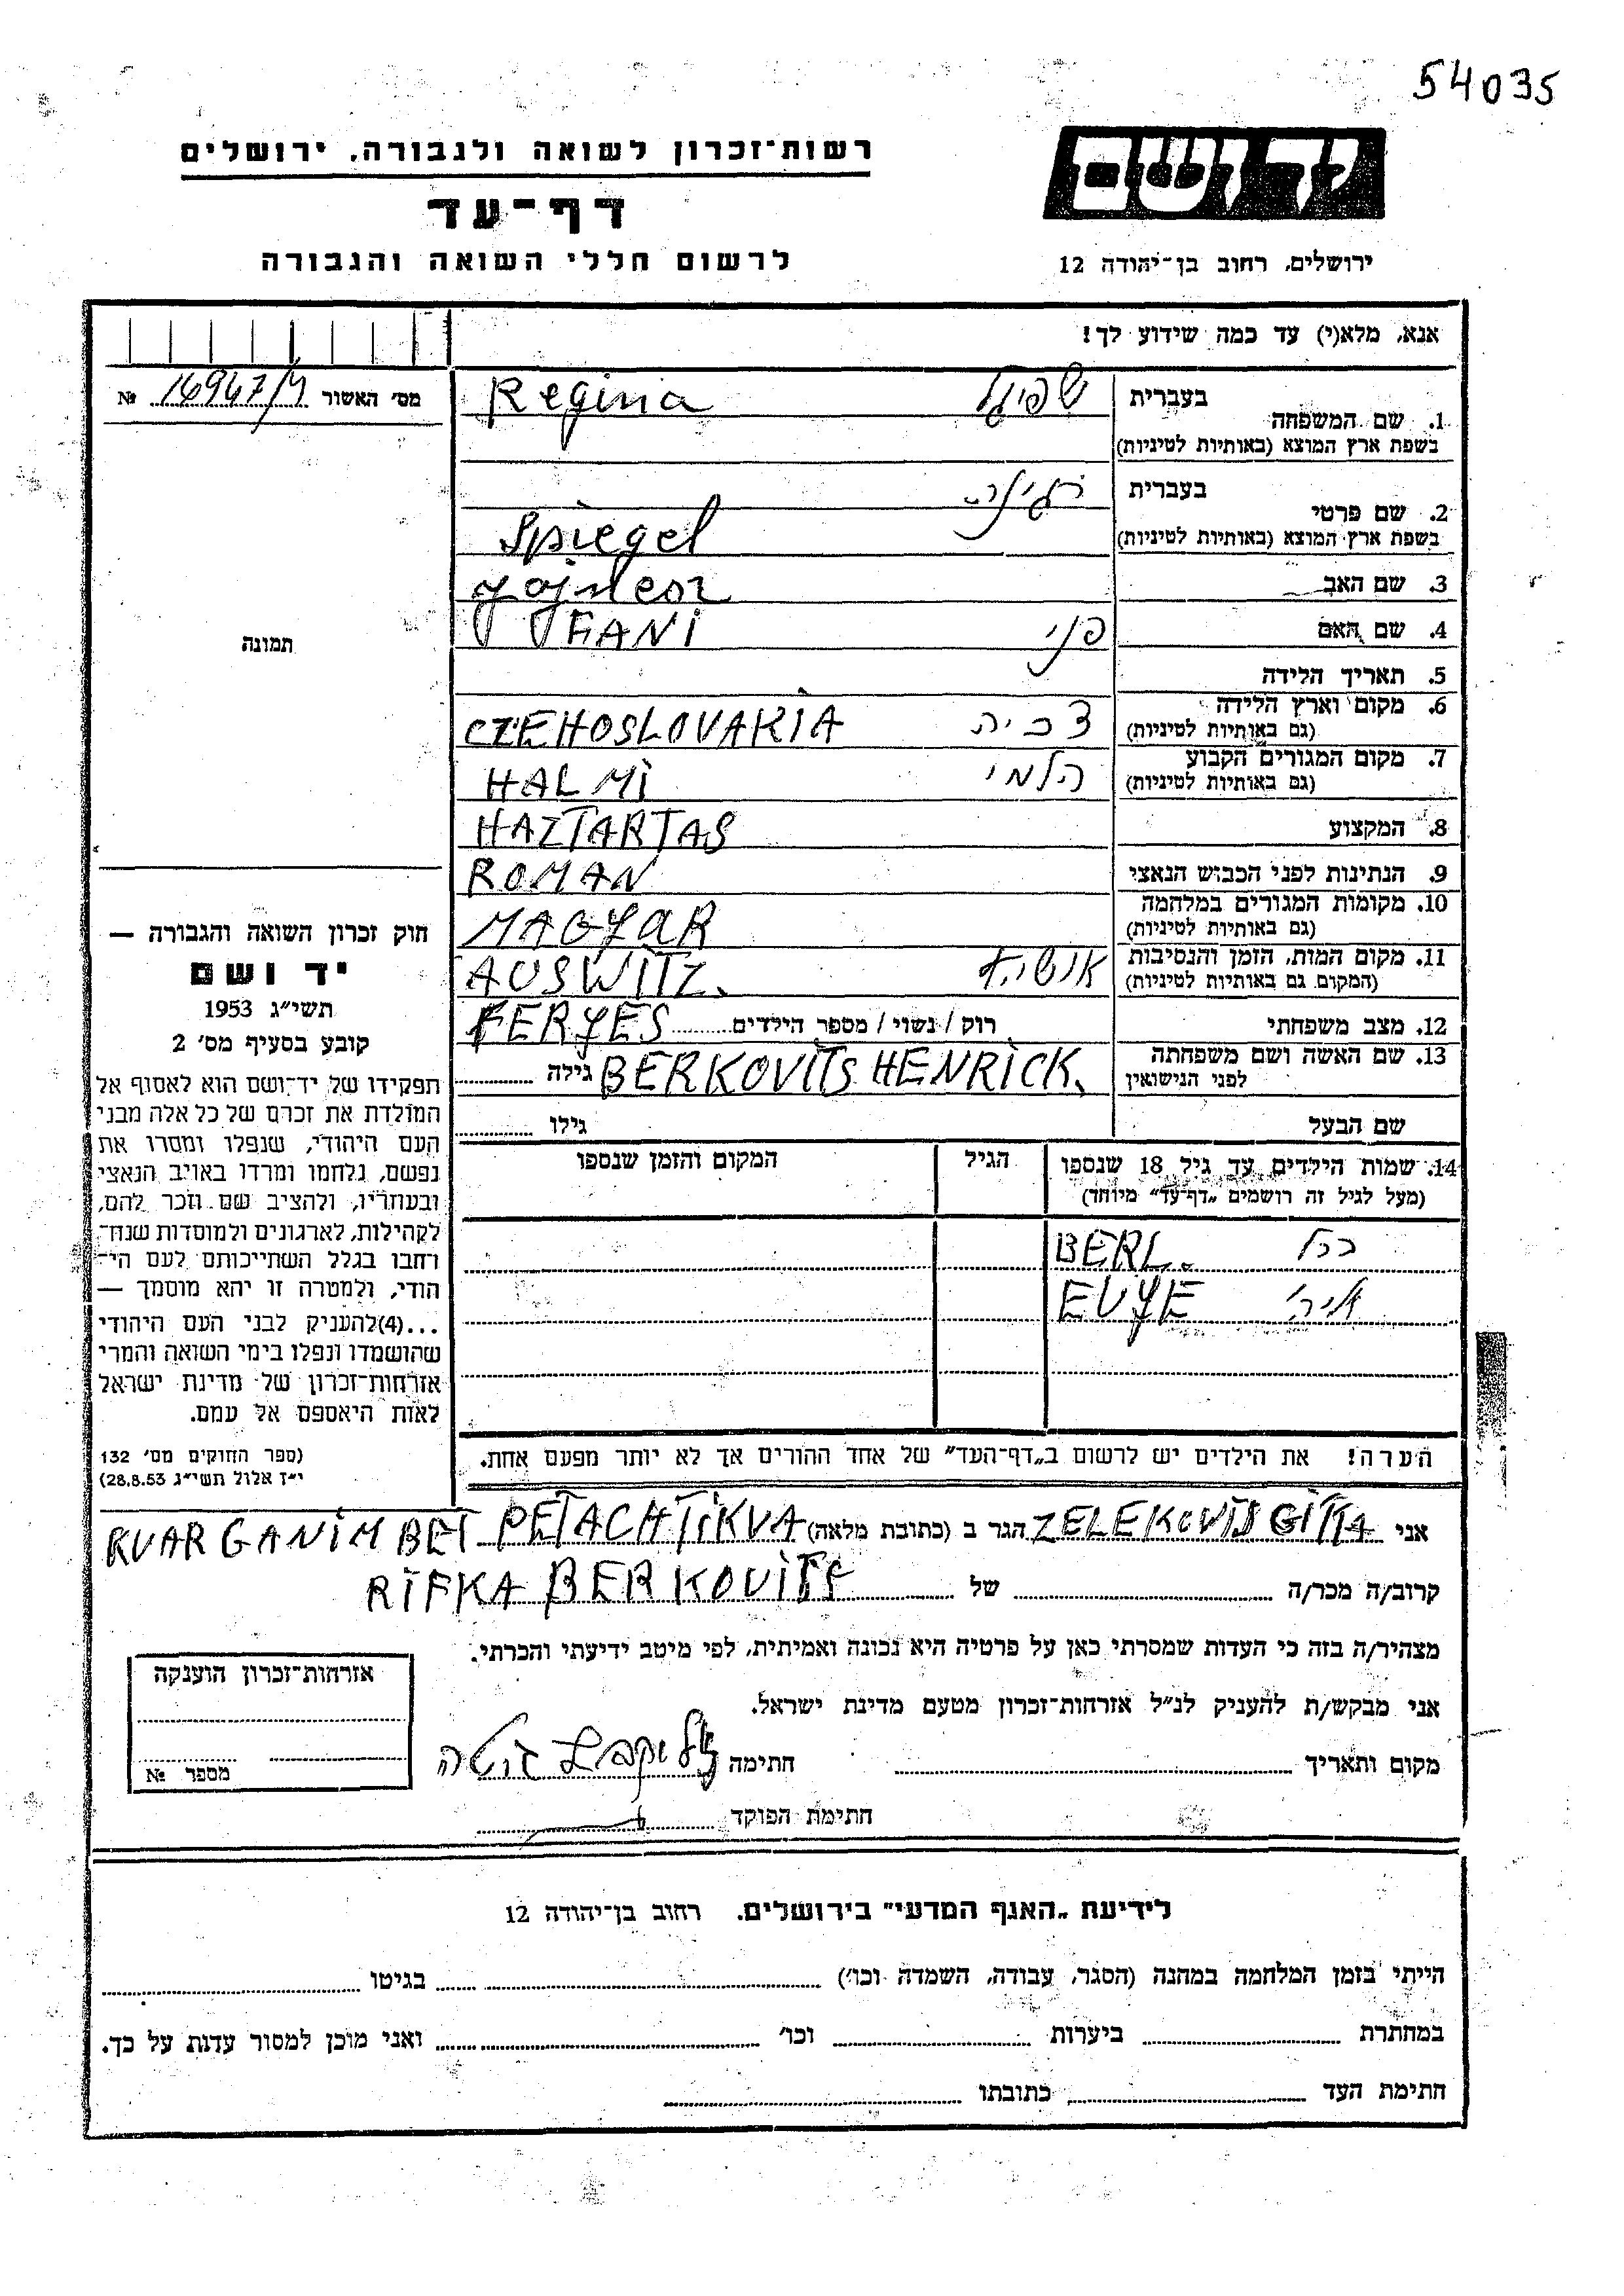 54035
רשות־זכרון לשואה ולגבורה, ירושלים
דף־עד
לרשום חללי השואה והגבורה
יד ושם
ירושלים, רחוב בן־יהודה 12
אנא, מלא(י) עד כמה שידוע לך!
מס' האשור № 16947/4
1. שם המשפחה בעברית שפיגל Regina
בשפת ארץ המוצא (באותיות לטיניות)
2. שם פרטי בעברית
בשפת ארץ המוצא (באותיות לטיניות) Spiegel
3. שם האב
4. שם האם פני FANI
5. תאריך הלידה
6. מקום וארץ הלידה צכיה CZEHOSLOVAKIA
(גם באותיות לטיניות)
7. מקום המגורים הקבוע הלמי HALMI
(גם באותיות לטיניות)
8. המקצוע HAZTARTAS
9. הנתינות לפני הכבוש הנאצי ROMAN
10. מקומות המגורים במלחמה MAGYAR
(גם באותיות לטיניות)
11. מקום המות, הזמן והנסיבות AUSWITZ.
(המקום גם באותיות לטיניות)
12. מצב משפחתי רוק / נשוי / מספר הילדים FERYES
13. שם האשה ושם משפחתה לפני הנישואין BERKOVITS HENRICK. גילה
שם הבעל גילו
14. שמות הילדים עד גיל 18 שנספו הגיל המקום והזמן שנספו
(מעל לגיל זה רושמים „דף־עד" מיוחד)
BERL. ברל
EVYE
הערה! את הילדים יש לרשום ב„דף־העד" של אחד ההורים אך לא יותר מפעם אחת.
תמונה
חוק זכרון השואה והגבורה —
יד ושם
תשי"ג 1953
קובע בסעיף מס' 2
תפקידו של יד־ושם הוא לאסוף אל
המולדת את זכרם של כל אלה מבני
העם היהודי, שנפלו ומסרו את
נפשם, נלחמו ומרדו באויב הנאצי
ובעוזריו, ולהציב שם וזכר להם,
לקהילות, לארגונים ולמוסדות שנח־
רחבו בגלל השתייכותם לעם הי־
הודי, ולמטרה זו יהא מוסמך —
...(4)להעניק לבני העם היהודי
שהושמדו ונפלו בימי השואה והמרי
אזרחות־זכרון של מדינת ישראל
לאות היאספם אל עמם.
(ספר החוקים מס' 132
י"ז אלול תשי"ג 28.8.53)
אני ZELEKOVIS GITTA הגר ב (כתובת מלאה) PETACH TIKVA KVAR GANIM BET
קרוב/ה מכר/ה של RIFKA BERKOVITS
מצהיר/ה בזה כי העדות שמסרתי כאן על פרטיה היא נכונה ואמיתית, לפי מיטב ידיעתי והכרתי.
אני מבקש/ת להעניק לנ"ל אזרחות־זכרון מטעם מדינת ישראל.
מקום ותאריך חתימה
חתימת הפוקד
אזרחות־זכרון הוענקה
מספר №
לידיעת „האגף המדעי" בירושלים, רחוב בן־יהודה 12
הייתי בזמן המלחמה במחנה (הסגר, עבודה, השמדה וכו') בגיטו
במחתרת ביערות וכו' ואני מוכן למסור עדות על כך.
חתימת העד כתובתו